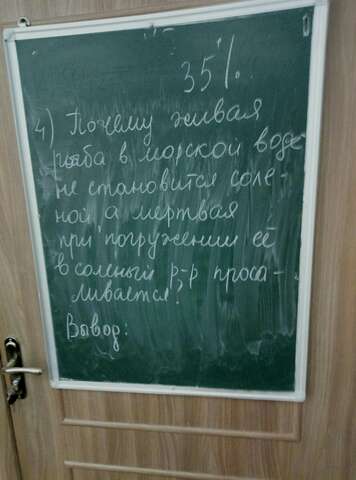 35%.
4) Почему живая
рыба в морской воде
не становится соле-
ной а мертвая
при погружении её
в соленый р-р проса-
ливается?
Вывод: